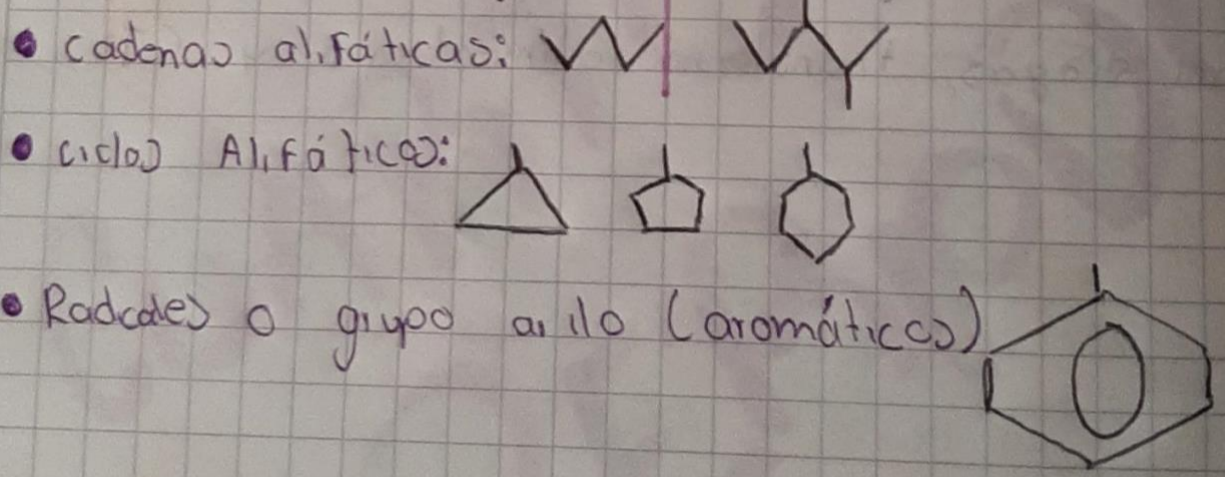 • cadenas alifáticas:
• ciclos Alifáticos:
• Radicales o grupo arilo (aromáticos)